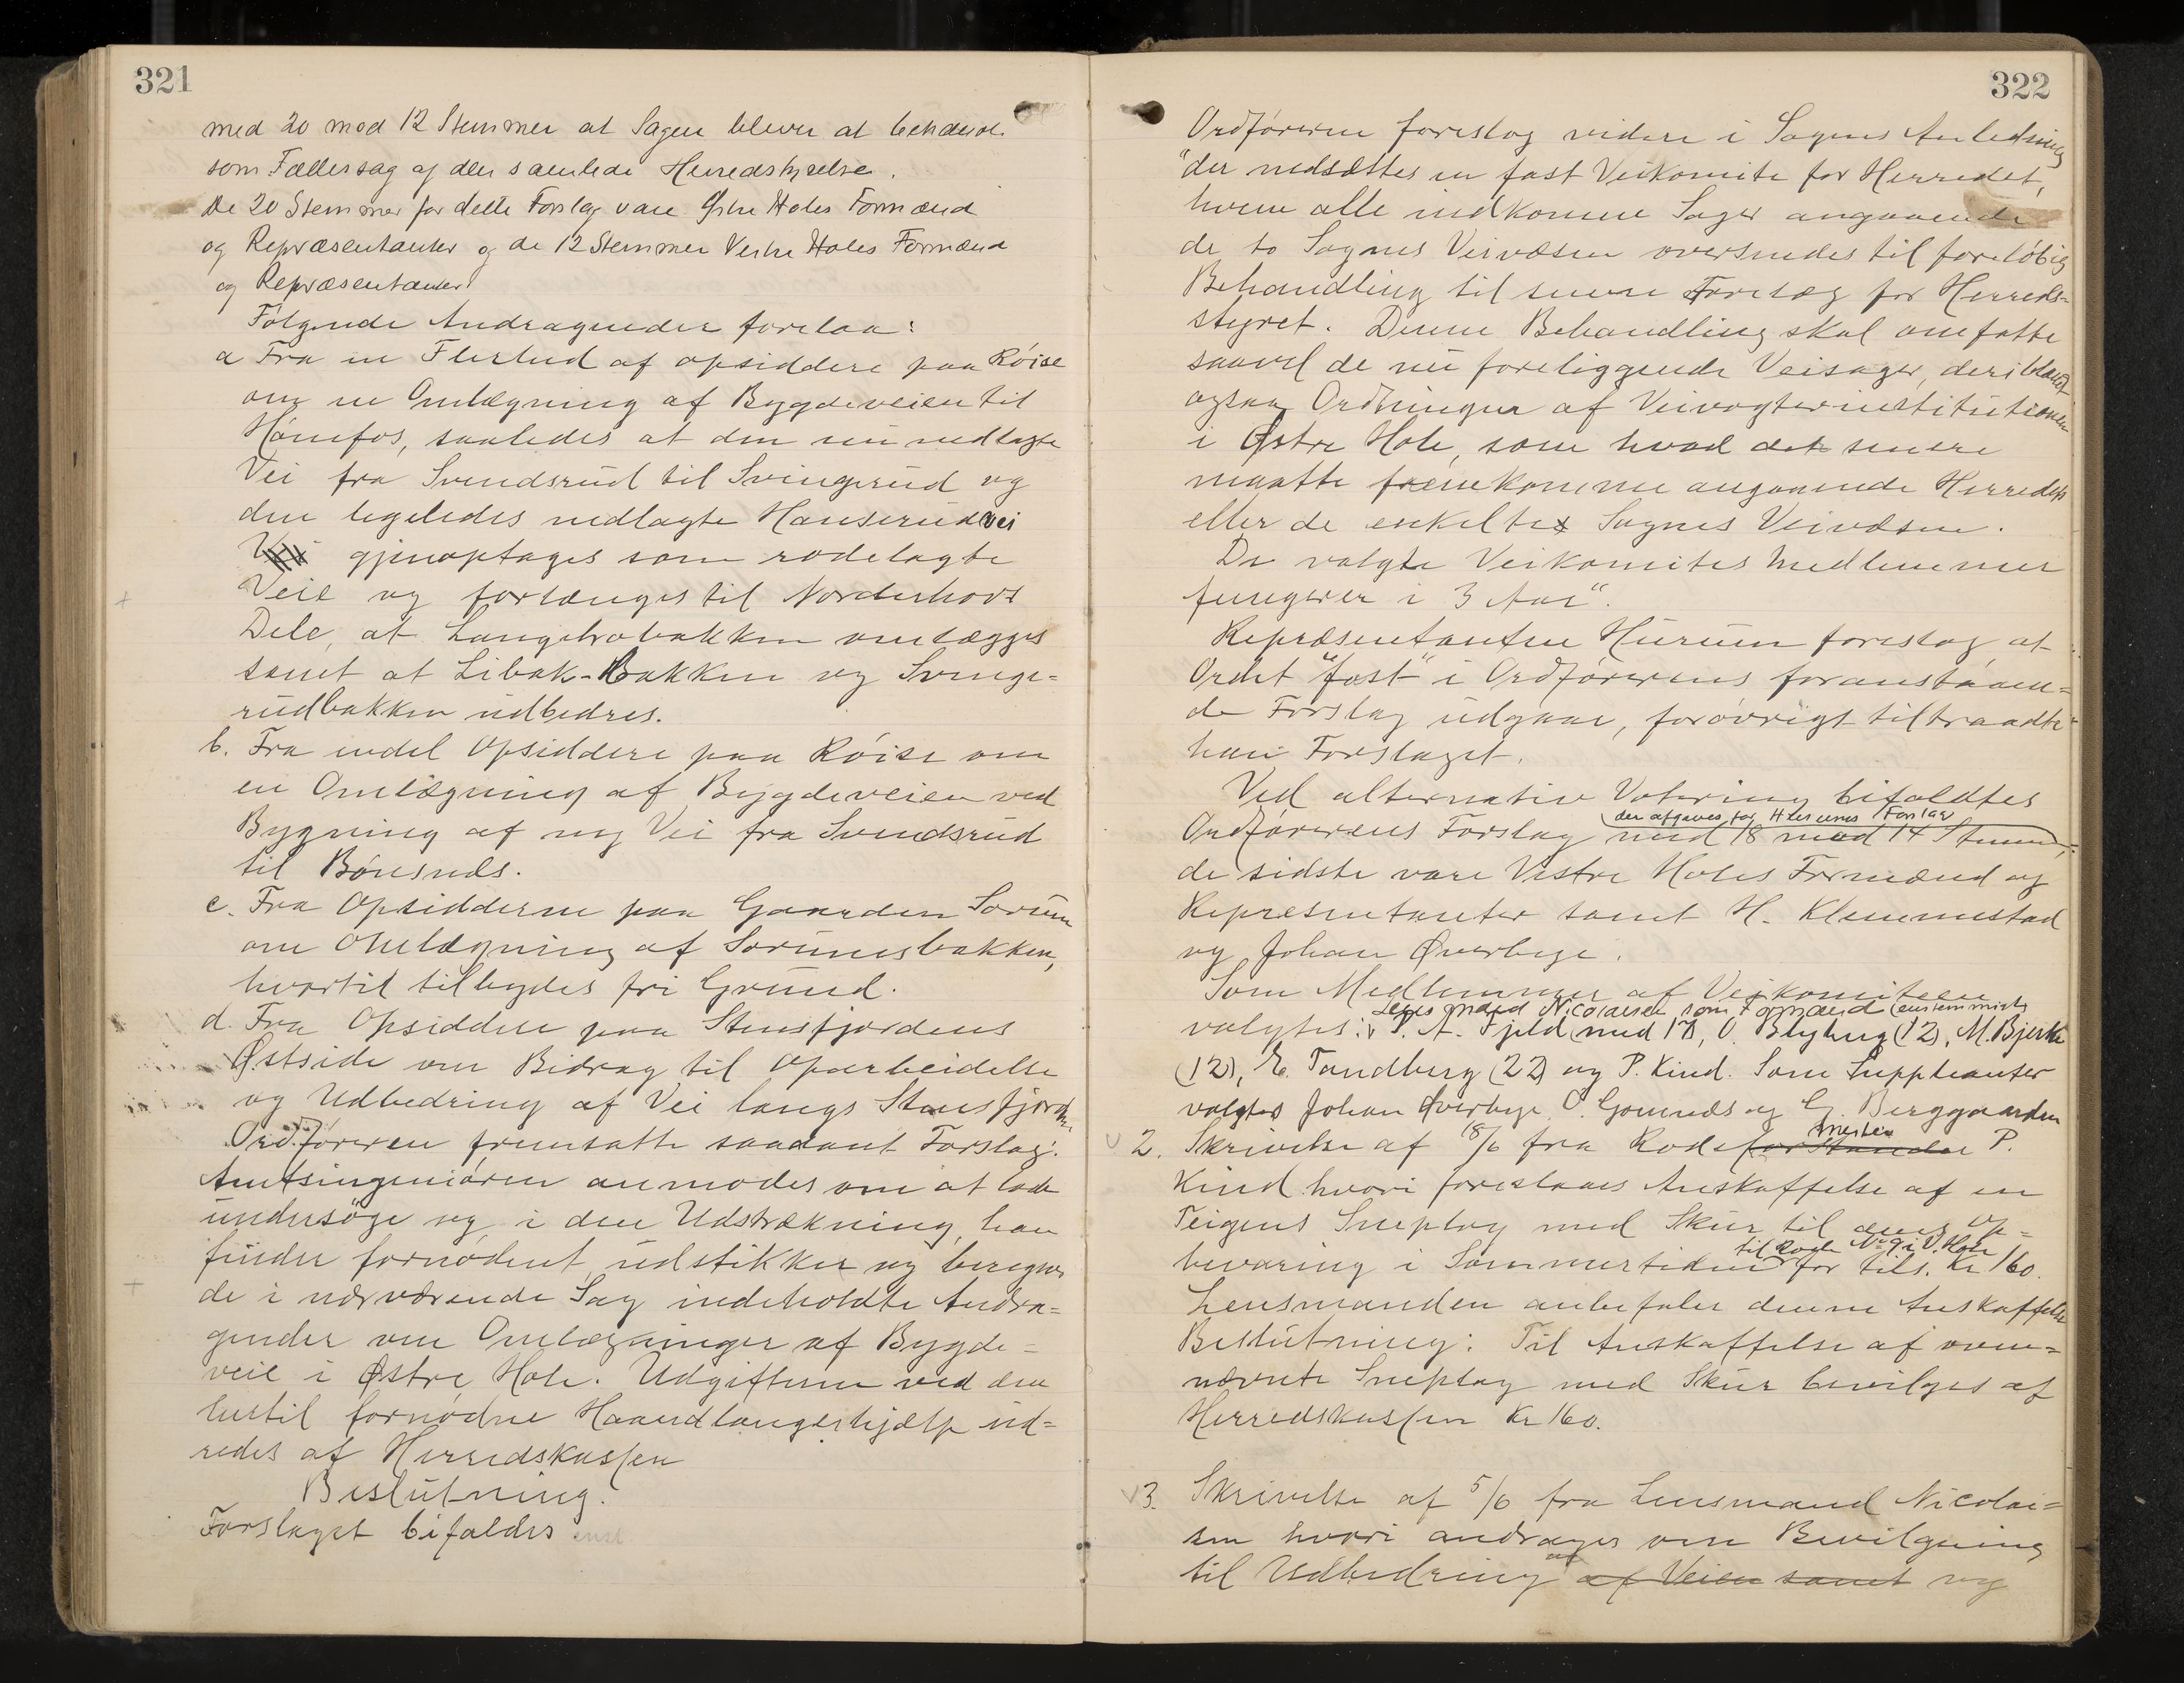 321
med 20 mod 12 Stemmer at Sagen bliver at behandle
som Fællessag af den samlede Herredstyrelse.
De 20 Stemmer for dette Forslag vare Østre Holes Formænd
og Repræsentanter og de 12 Stemmer Vestre Holes Formænd
og Repræsentanter.
Følgende Andragender forelaa:
a Fra en Flerhed af opsiddere paa Röise
om en Omlægning af Bygdeveien til
Hönefos, saaledes at den nu nedlagte
Vei fra Svendsrud til Svingerud og
den ligeledes nedlagte Hanserudvei
Vei gjenoptages som rodelagte
Veie og forlænges til Norderhovs
Dele, at Langebrobakken omlægges
samt at Libak-Bakken og Svinge-
rudbakken udbedres.
b. Fra endel Opsiddere paa Röise om
en Omlægning af Bygdeveien ved
Bygning af ny Vei fra Svendsrud
til Bönsnæs.
c. Fra Opsidderne paa Gaarden Sorum
om Omlægning af Sorumsbakken,
hvortil tilbydes fri Grund.
d. Fra Opsiddere paa Stensfjordens
Østside om Bidrag til Oparbeidelse
og Udbedring af Vei langs Stensfjorden.
Ordföreren fremsatte saadant Forslag:
Amtsingeniören anmodes om at lade
undersöge og, i den Udstrækning, han
finder fornödent, udstikker og beregner
de i nærværende Sag indeholdte Andra-
gender om Omlægninger af Bygde-
veie i Østre Hole. Udgifterne ved den
hertil fornödne Haandlangerhjælp ud-
redes af Herredskassen
Beslutning.
Forslaget bifaldes enst
322
Ordföreren foreslog videre i Sagens Anledning
"der nedsættes en fast Veikomite for Herredet,
hvem alle indkomne Sager angaaende
de to Sognes Veivæsen oversendes til forelöbig
Behandling til senere Forelæg for Herreds-
styret. Denne Behandling skal omfatte
saavel de nu foreliggende Veisager, deriblandt
ogsaa Ordningen af Veivogterinstitutionen
i Østre Hole, som hvad det senere
maatte fremkomme angaaende Herredets
eller de enkelte Sognes Veivæsen.
De valgte Veikomites Medlemmer
fungerer i 3 Aar".
Repræsentanten Hurum foreslog, at
Ordet "fast" i Ordförerens foranstaaen-
de Forslag udgaar, forövrigt tiltraadte
han Forslaget.
Ved alternativ Votering bifaldtes
der afgaves for Hurums Forslag
Ordförerens Forslag med 18 mod 14 Stemmer,
de sidste vare Vestre Holes Formænd og
Repræsentanter samt H. Klemmestad
og Johan Øverbye.
Som Medlemmer af Veikomiteen
Lensmand Nicolaisen som Formand (enstemmigt)
valgtes: P. A. Fjeld (med 17), O. Blyberg (12), M. Bjerke
(12), E. Tandberg (22) og P. Kind. Som Suppleanter
valgtes Johan Øverbye, O. Gomnæs og G. Berggaarden
2. Skrivelse af 18/6 fra Rodeforstander P.
mester
Kind hvori foreslaaes Anskaffelse af en
Teigens Sneplog med Skur til dens Op-
til Rode No 9 i V. Hole
bevaring i Sommertiden for tils. Kr 160.
Lensmanden anbefaler denne Anskaffelse
Beslutning: Til Anskaffelse af oven-
nævnte Sneplog med Skur bevilges af
Herredskassen Kr 160.
3. Skrivelse af 5/6 fra Lensmand Nicolai-
sen hvori andrages om Bevilgning
af
til Udbedring af Veien samt og